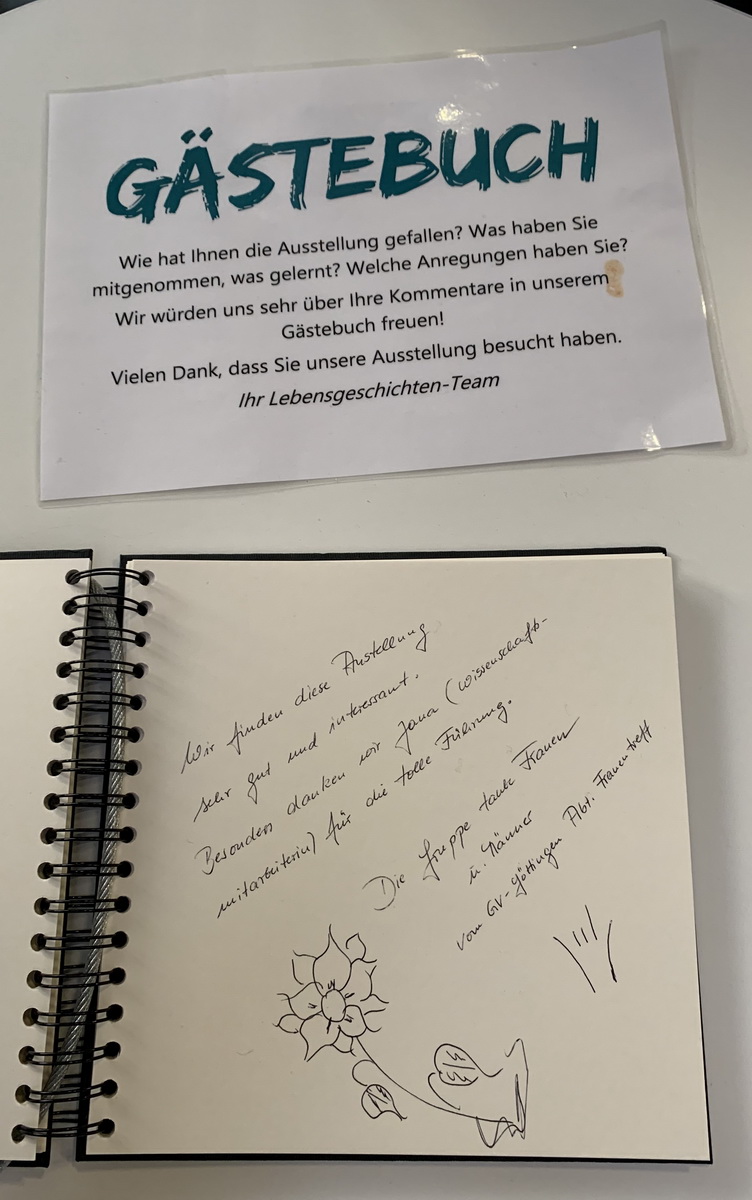 GÄSTEBUCH
Wie hat Ihnen die Ausstellung gefallen? Was haben Sie
mitgenommen, was gelernt? Welche Anregungen haben Sie?
Wir würden uns sehr über Ihre Kommentare in unserem
Gästebuch freuen!
Vielen Dank, dass Sie unsere Ausstellung besucht haben.
Ihr Lebensgeschichten-Team
Wir finden diese Austellung
sehr gut und interessant.
Besonders danken wir Jana (Wissenschafts-
mitarbeiterin) für die tolle Führung.
Die Gruppe taube Frauen
u. Männer
vom GV-Göttingen Abt. Frauentreff